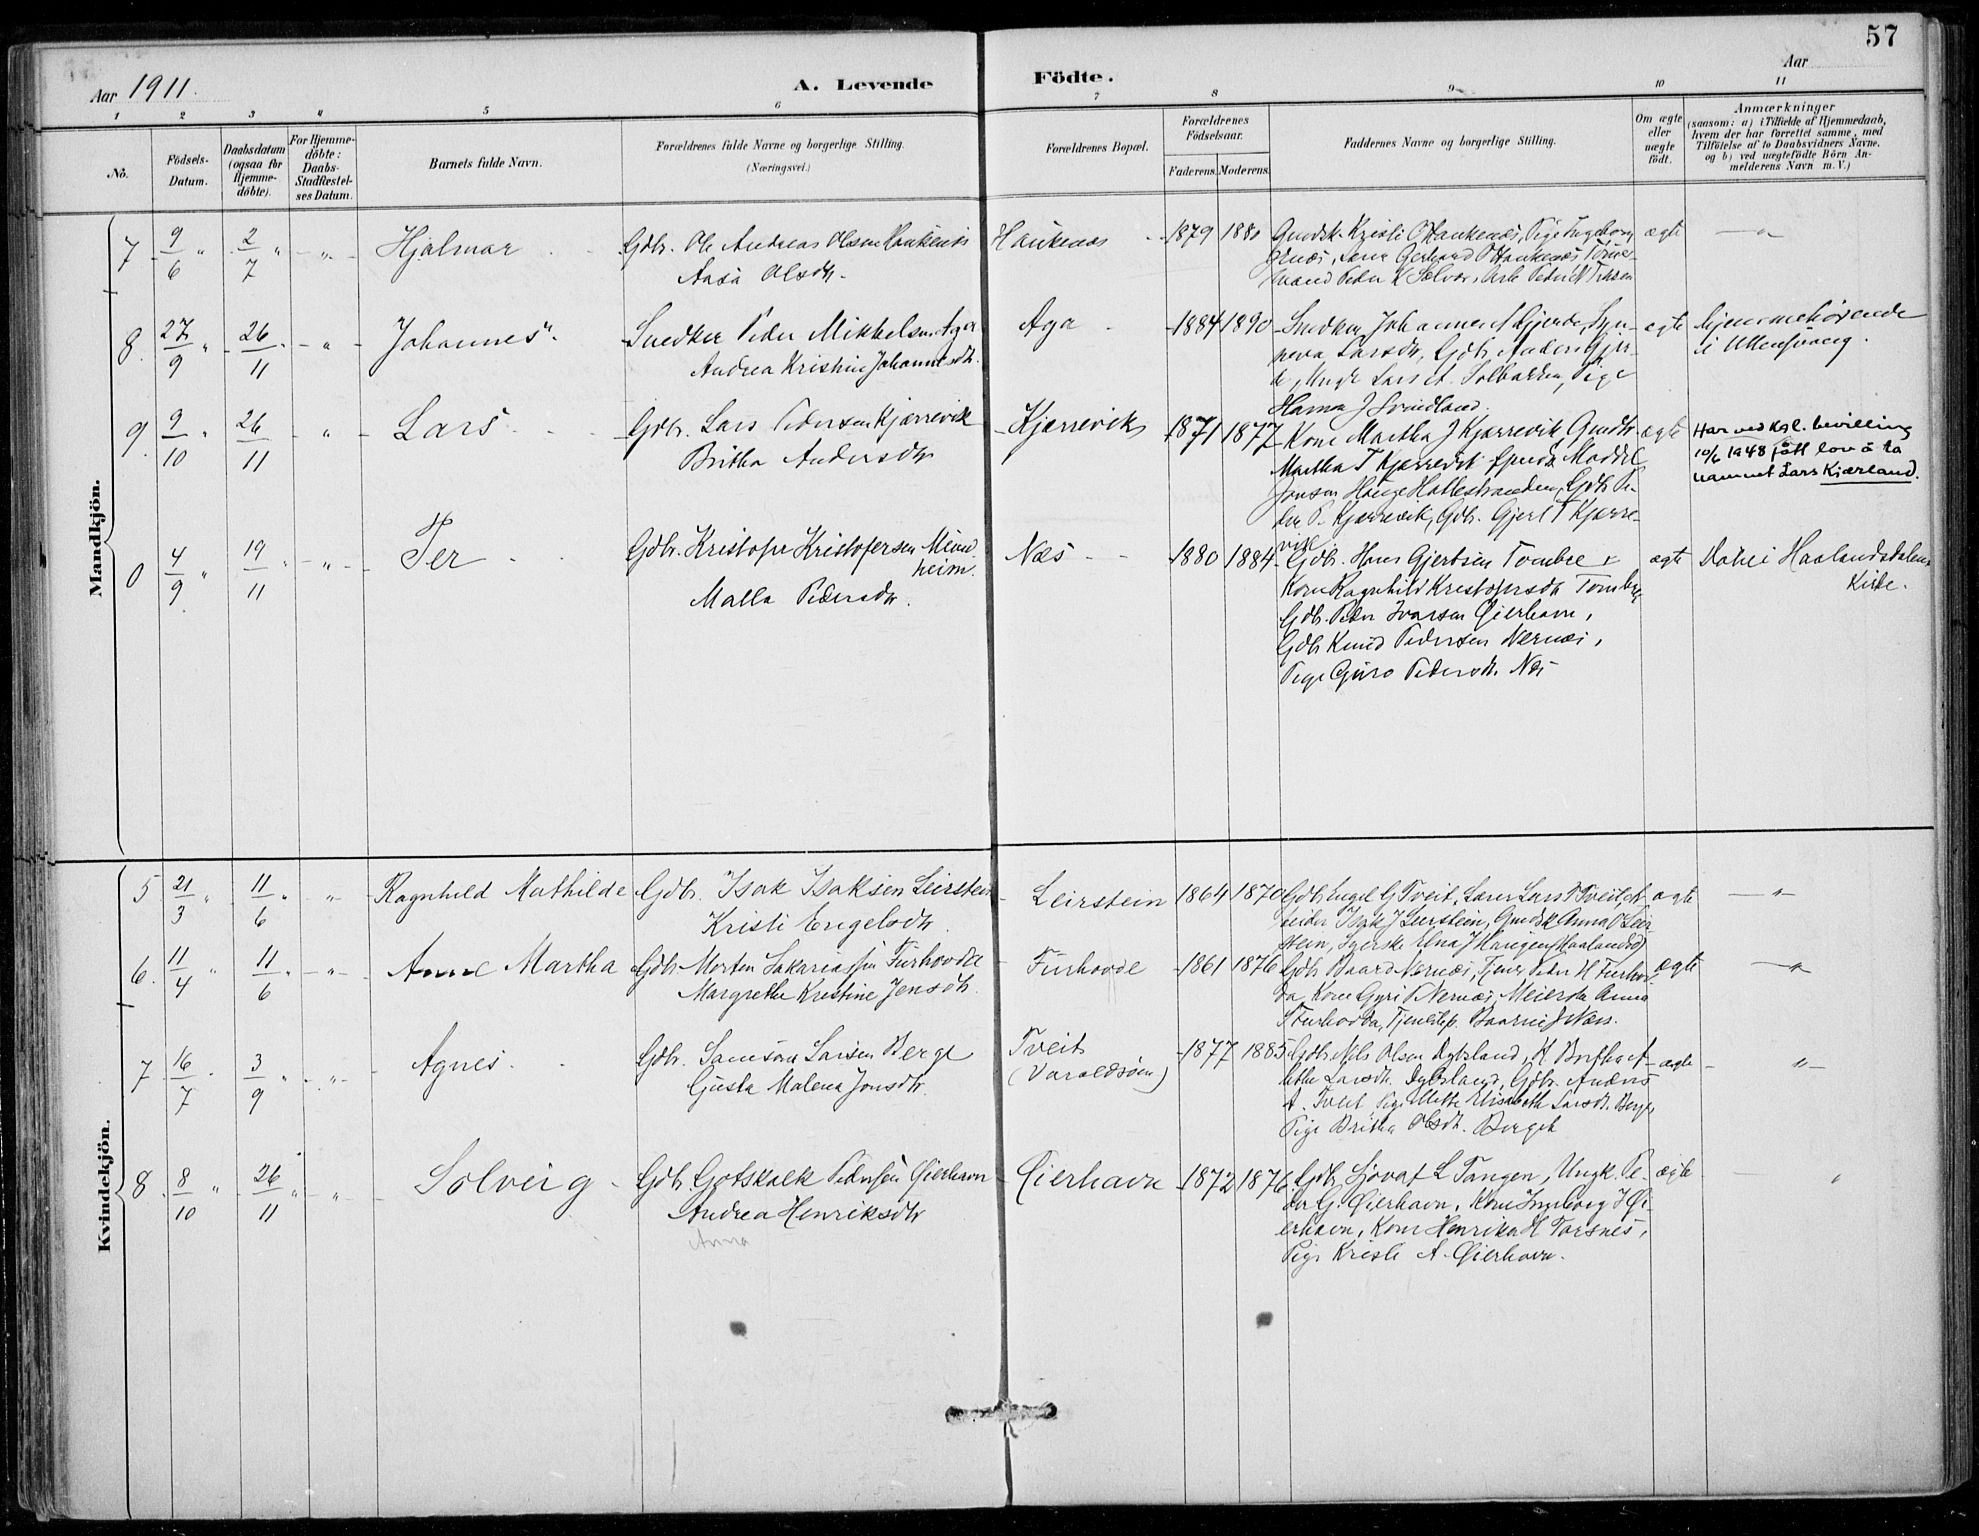 57
Aar 1911.
A. Levende Födte.
Aar
1 2 3 4 5 6 7 8 9 10 11
No.
Födsels-Datum.
Daabsdatum (ogsaa for Hjemme-döbte).
For Hjemme-döbte: Daabs-Stadfæstel-ses Datum.
Barnets fulde Navn.
Forældrenes fulde Navne og borgerlige Stilling.
(Næringsvei.)
Forældrenes Bopæl.
Forældrenes Födselsaar.
Faderens. Moderens.
Faddernes Navne og borgerlige Stilling.
Om ægte eller uægte født.
Anmærkninger
(saasom: a) i Tilfælde af Hjemmedaab,
hvem der har forrettet samme, med
Tilföielse af to Daabsvidners Navne.
og b) ved uægtefödte Börn An-
melderens Navn m.V.)
Mandkjön.
7 9/6 " 2/7 " - " - Hjalmar
Gdbr. Ole Andreas Olsen Haukenæs
Aasa Olsdtr.
Haukenæs 1879 1880
Gmdsk. Kristi O Haukenæs, Pige Ingeborg
Gerhard O Haukenæs
mand Peder K Selvær,
ægte - " -
8. 27/9 " 26/11 " - " - Johannes
Snedker Peder Mikkelsen Aga
Andrea Kristine Johannesdtr.
Aga 1884 1890
Snedker Johannes N Gjerde, Syn-
neva Larsdtr, Gdbr. Anders Gjer-
de, Ungk. Lars A. Solbakken, Pige
Hanna J Svindland.
ægte
hjemmehørende
i Ullensvang.
9. 9/10 " 26/11 - " - Lars
Gdbr. Lars Pedersen Kjærrevik
Britha Andersdtr
Kjærrevik 1871 1877
Kone Martha J Kjærrevik Gmdsk.
Martha T Kjærrevik
Jonsen Hauge Hatlestranden, Gdbr Pe-
der P. Kjærrevik, Gdbr. Gjert T Kjærre-
vik
ægte
Har ved kgl. bevilling
10/6 1948 fått lov å ta
navnet Lars Kjærland.
0 4/9 " 19/11 " - " - Per
Gdbr. Kristofer Kristofersen Mund-
heim.
Malla Pedersdtr.
Næs 1880 1884
Gdbr. Hans Gjertsen Tombre
Kone Ragnhild Kristofersdtr Tombre,
Gdbr. Peder Ivarsen Øierhavn,
Gdbr Knud Pedersen Nernæs,
Pige Guro Pedersdtr. Næs
ægte
Døbt i Haalandsdalens
Kirke.
Kvindekjön.
5 21/3 " 11/6 " " Ragnhild Mathilde
Gdbr. Isak Isaksen Leirstein
Kristi Engelsdtr
Leirstein 1864 1870
Gdbr Engel G Tveit, Lærer Lars T Tveit, Ar-
beider Isak J Leirstein, Gmdsk Anna I Leir-
stein,
ægte - " -
6. 11/4 " 11/6 " - " - Anne Martha
Gdbr Morten Sakariassen Furhovde
Margrethe Kristine Jensdtr.
Furhovde 1861 1876
Gdbr Baard Nernæs, Tjener Peder H Furhov-
da, Kone Gyri P Nernæs, Meierske Anna
S Furhovda, Næss.
ægte - " -
7 16/7 " 3/9 " - " - Agnes
Gdbr. Samson Larsen Berge
Gusta Malena Jonsdtr.
Tveit
(Varaldsøen)
1877 1885
Gdbr. Nils Olsen Dybsland, K Britha A-
Larsdtr. Dybsland, Gdbr. Anders
A. Tveit Pige Mette Elisabeth Larsdtr. Berge,
Pige Britha Olsdtr. Berget
ægte - " -
8. 8/10 " 26/11 " - " - Solveig
Gdbr. Gotskalk Pedersen Øierhavn
Andrea Henriksdtr
Anna
Øierhavn 1872 1876
Gdbr. Sjovat L Tangen, Ungk. Pe-
der G. Øierhavn, Kone Ingeborg J Øi-
erhavn, Kone Henrika H Torsnes,
Pige Kristi A. Øierhavn.
ægte "